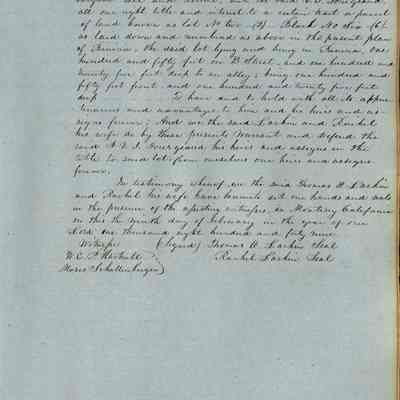 all our right title and interest to a certain tract or parcel
of land known as lot No two (2) Block No Six (6)
as laid down and marked as above in the present plan
of Benicia, the said lot lying and being in Benicia, one
hundred and fifty feet on B Street, and one hundred and
twenty five feet deep to an alley; being one hundred and
fifty feet front and one hundred and twenty five feet
deep To have and to hold with all its appur
tenances and advantages to him and his heirs and as-
signs forever; And we the said Larkin and Rachel
his wife do by these presents Warrant and defend the
said his heirs and assigns in the
title to said lot from ourselves our heirs and assigns
forever.
In testimony whereof we the said Thomas O. Larkin
and Rachel his wife have hereunto set our hands and seals
in the presence of the witnesses, in Monterey California
on this the ninth day of February in the year of our
Lord one thousand eight hundred and forty nine
Witnesses (Signed) Thomas O. Larkin Seal
W. E. P. Hartnell Rachel Larkin Seal
Moses Schallenberger